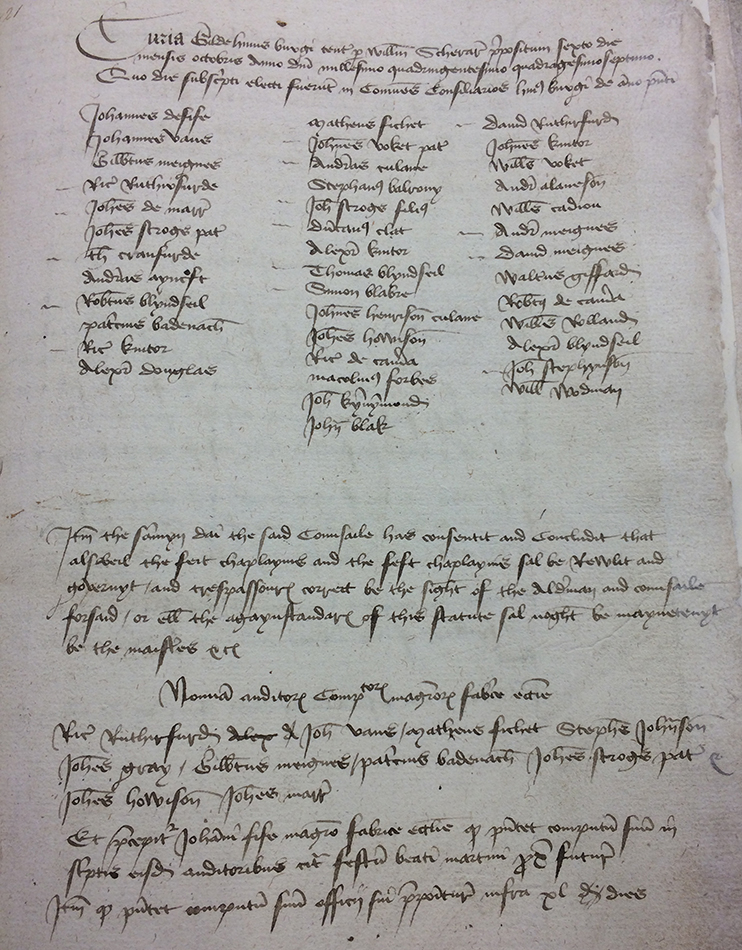 21
Curia Gilde huius burgi tent p Willm Scherar ppositum sexto die
mensis octobris Anno dni millesimo quadringentesimo quadragesimoseptimo.
Quo die subscpti electi fuerut in Comunes Consiliarios huiq burgi de año pnti
Johannes de fife
Johannes Vaus
Gilbtus meignes
Ric Ruthirfurde
Johes de marr
Johes stroges pat
th cranfurde
Andreas
Robtus blyndseil
patricius badenach
Ric kintor
Alexr douglas
Matheus fichet
Johnes Voket pat
Andreas culane
Stephanq balrony
Joh stroges filiq
duncanq clat
Alexr kintor
Thomas blyndseil
Simon blakre
Johnes henrison culane
Johes howison
Ric de camera
macolmq forbes
Joh kynymond
John blak
dauid Ruthirfurd
Johnes kintor
Wills Voket
Andr alanson
Wills cadiou
Andr meignes
dauid meignes
Walterus giffard
Robtq de camera
Wills Rolland
Alexr blyndseil
Joh stephynson
Will Wodman
Itm the samyn dai the said Counsaile has consentit and Concludit that
alsweil the feit chaplaynis and the feft chaplaynis sal be Rewlit and
gouernyt / and trespassouris correct be the sight of the Aldrman and counsaile
forsaid / or ell the agaynstandaris of this statute sal noght be mayntenyt
be the maisters &c
Nomia auditor Comptor magror fabce eccie
Ric Ruthirfurd Alexr A Joh Vaus / Matheus fichet Stephes Johnson
Johes gray / Gilbtus meignes / patricius badenach Johes stroges pat &
Johes howison Johes marr
Et pcepit Johani fife magro fabrice eccie qd pntet computu suu in
scptis eisd auditoribus cit festu beati martini px futur
Itm qd pntet computu suu officii sui ppoitur infra xl dies